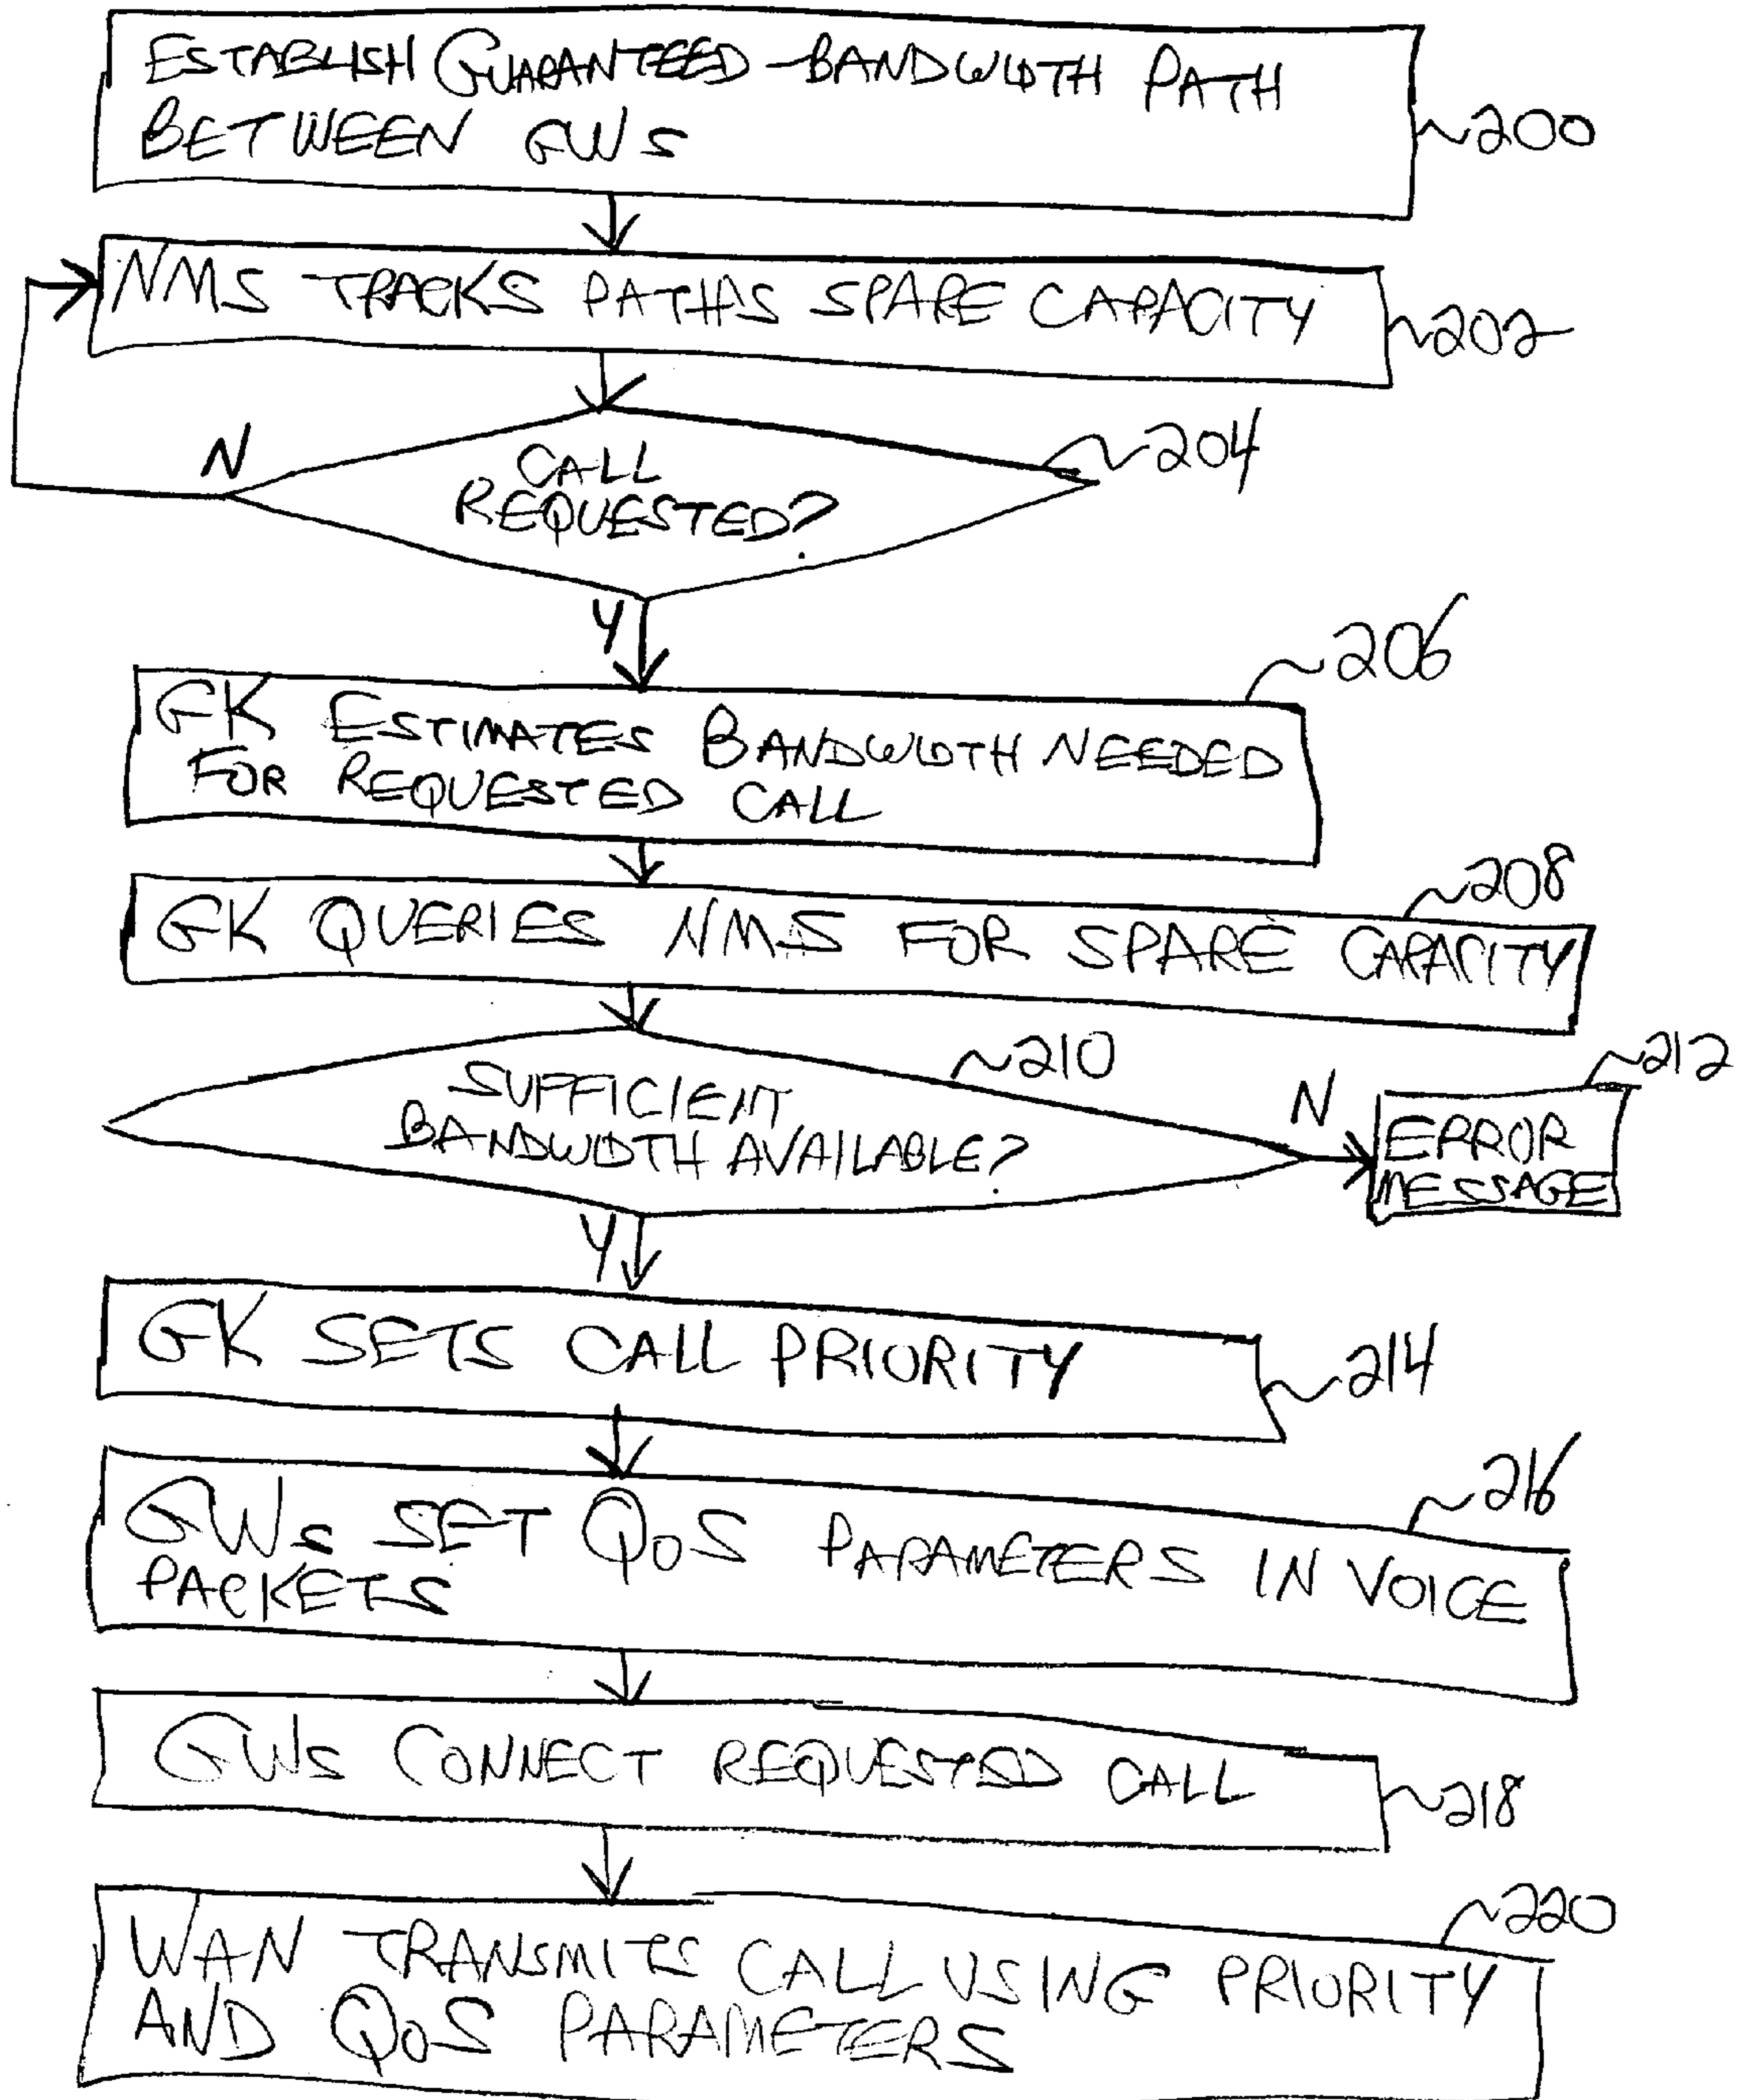 ESTABLISH GUARANTEED-BANDWIDTH PATH
BETWEEN GWs
~200
NMS TRACKS PATH'S SPARE CAPACITY
~202
N
CALL
REQUESTED?
~204
Y
~206
GK ESTIMATES BANDWIDTH NEEDED
FOR REQUESTED CALL
~208
GK QUERIES NMS FOR SPARE CAPACITY
~210
SUFFICIENT
BANDWIDTH AVAILABLE?
N
~212
ERROR
MESSAGE
Y
GK SETS CALL PRIORITY
~214
~216
GWs SET QoS PARAMETERS IN VOICE
PACKETS
GWs CONNECT REQUESTED CALL
~218
~220
WAN TRANSMITS CALL USING PRIORITY
AND QoS PARAMETERS